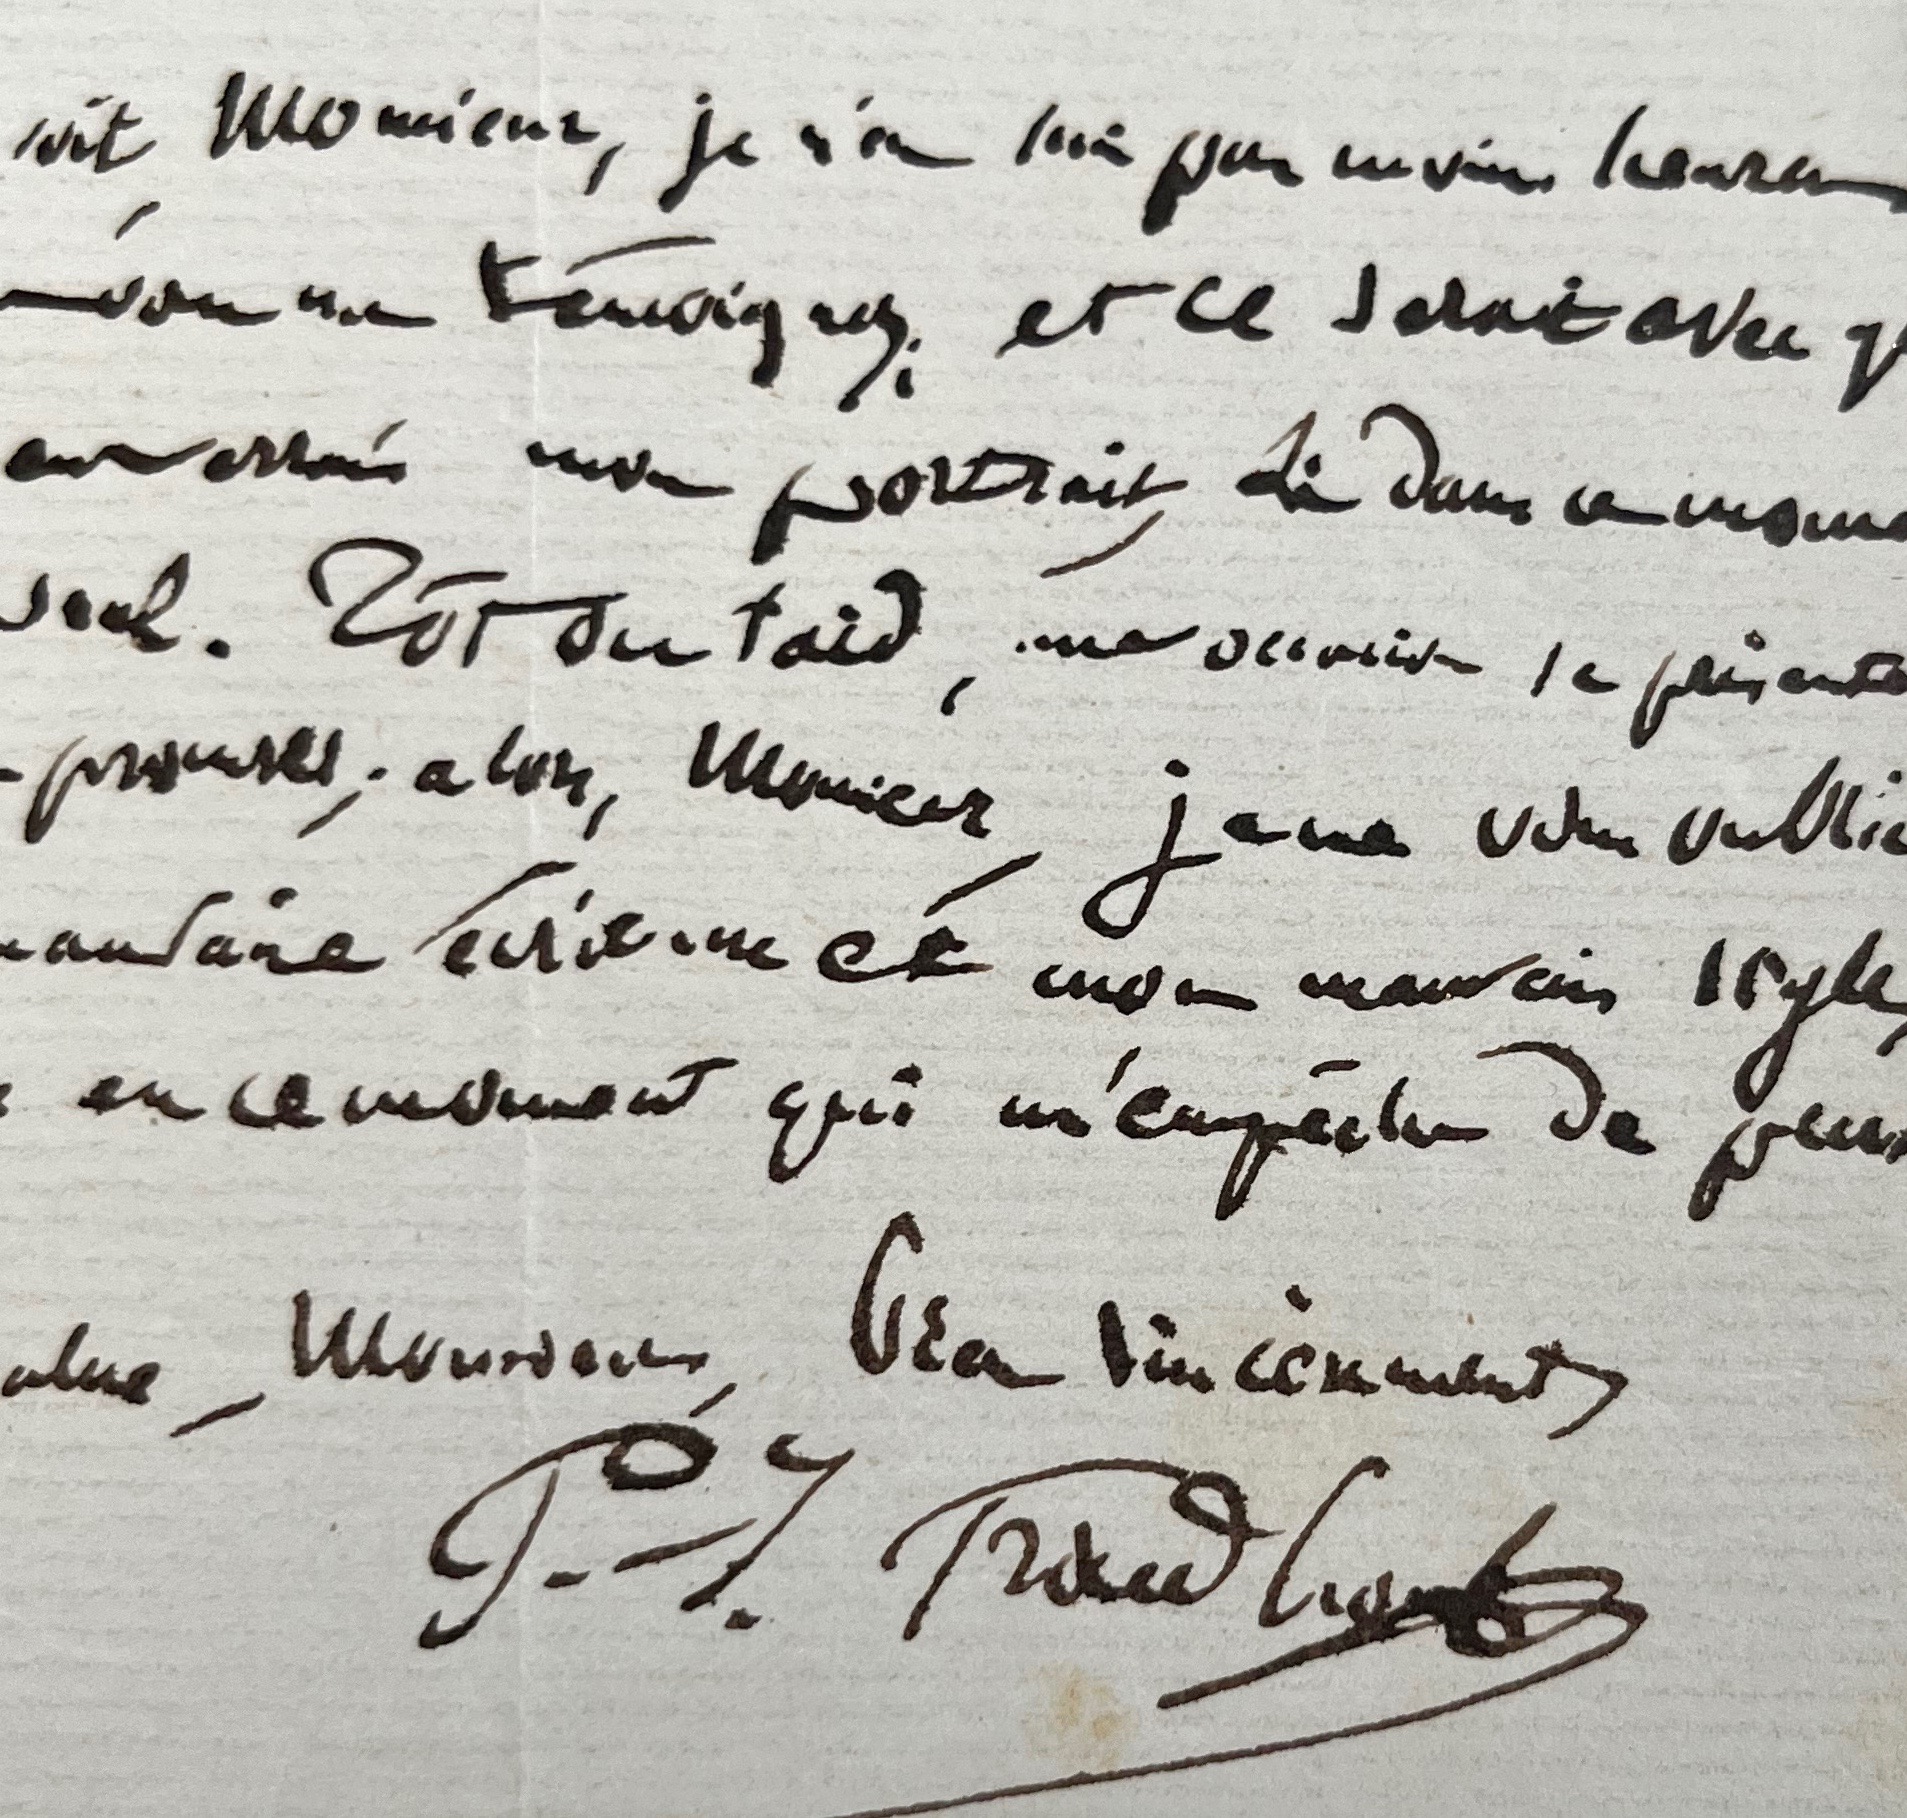 soit, Monsieur, je n'en suis pas moins heureux
vous me témoignez; et ce serait avec
enverrais mon portrait, si dans ce mome
seul. Tôt ou tard, une occasion se présente
promesse; alors, Monsieur, je ne vous oublie
mandaine écriture et mon mauvais style,
en ce moment qui m'empêche de
salue, Monsieur, bien sincèrement,
P.-J. Proudhon